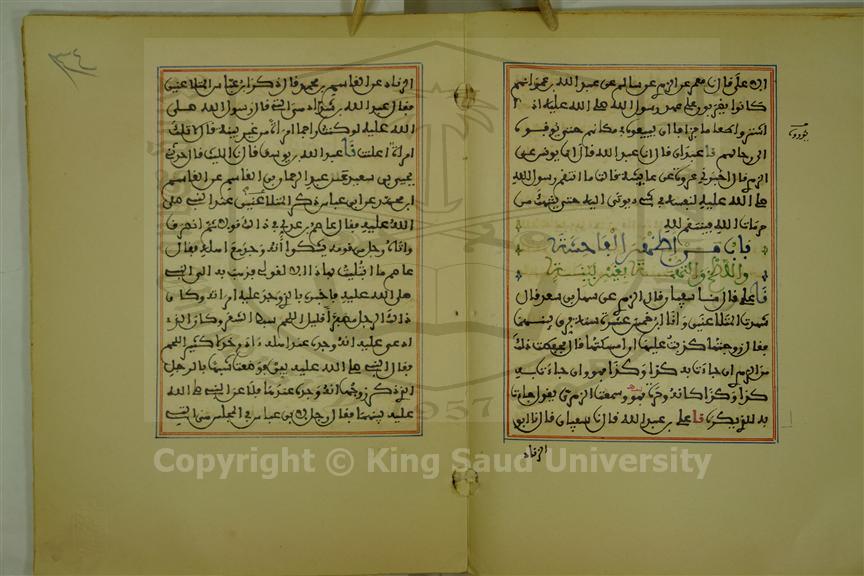 الاعلى قال نا معمر عن الزهري عن سالم عن عبد الله بن عمر انهم
كانوا يضربون على عهد رسول الله صلى الله عليه اذا
اشتروا طعاما جزافا ان يبيعوه في مكانهم حتى يؤووه
الى رحالهم نا عبدان قال انا عبد الله قال انا يونس عن
الزهري قال اخبرني عروة عن عايشة قالت ما انتقم رسول الله
صلى الله عليه لنفسه في شيء يوتى اليه حتى ينتهك من
حرمات الله فينتقم لله
باب من اظهر الفاحشة
واللطخ والتهمة بغير بينة
نا علي قال نا سفيان قال الزهري عن سهل بن سعد قال
شهدت المتلاعنين وانا ابن خمس عشرة سنة فرق بينهما
فقال زوجها كذبت عليها ان امسكتها قال فحفظت ذلك
من الزهري ان جاءت به كذا وكذا فهو وان جاءت به
كذا وكذا كانه وحرة فهو وسمعت الزهري يقول جاءت
به للذي يكره نا علي بن عبد الله قال نا سفيان قال نا ابو
الزناد
٣٤
الزناد عن القاسم بن محمد قال ذكر ابن عباس المتلاعنين
فقال عبد الله بن شداد هي التي قال رسول الله صلى
الله عليه لو كنت راجما امراة من غير بينة قال لا تلك
امراة اعلنت نا عبد الله بن يوسف قال نا الليث قال حدثني
يحيى بن سعيد عن عبد الرحمان بن القاسم عن القاسم
ابن محمد عن ابن عباس ذكر المتلاعنين عند النبي صلى
الله عليه فقال عاصم بن عدي في ذلك قولا ثم انصرف
واتاه رجل من قومه يشكوا انه وجد مع اهله فقال
عاصم ما ابتليت بهذا الا لقولي فذهب به الى النبي
صلى الله عليه فاخبره بالذي وجد عليه امراته وكان
ذلك الرجل مصفرا قليل اللحم سبط الشعر وكان الذي
ادعى عليه انه وجده عند اهله ءادم خدلا كثير اللحم
فقال النبي صلى الله عليه اللهم بين فوضعت شبيها بالرجل
الذي ذكر زوجها انه وجده عندها فلاعن النبي صلى الله
عليه بينهما فقال رجل لابن عباس في المجلس هي التي
Copyright © King Saud University
1957